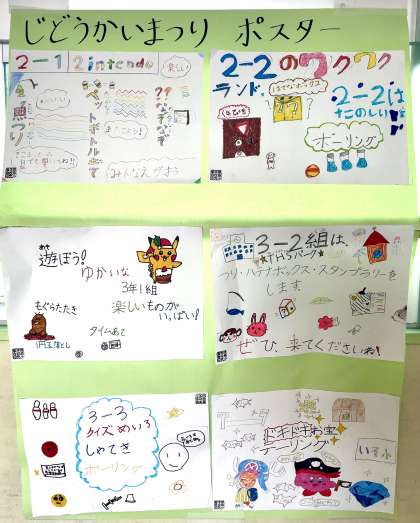 じどうかいまつり ポスター
2-1 2intendo
楽しい
魚つり
ペットボトル立て
??なぞなぞ
みんなえがおう
2-2のワクワク
ランド、
はてなボックス
2-2は
たのしいな
ボーリング
遊ぼう!
ゆかいな
3年1組
もぐらたたき
楽しいものが
いっぱい!
タイムあて
1円玉落とし
3-2組は、
つり・ハテナボックス・スタンプラリーを
します
ぜひ、来てくださいね!
3-3
クイズめいろ
しゃてき
ボーリング
ドキドキお宝